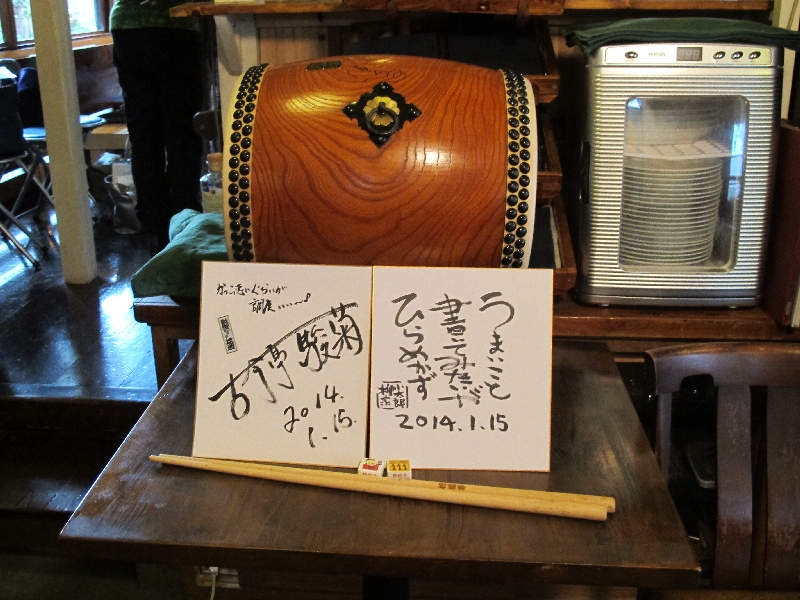 かっこ悪いぐらいが
調度いい〜
古今亭駿菊
2014.
1.15.
うまいこと
書いてみたが
ひらめかず
2014.1.15